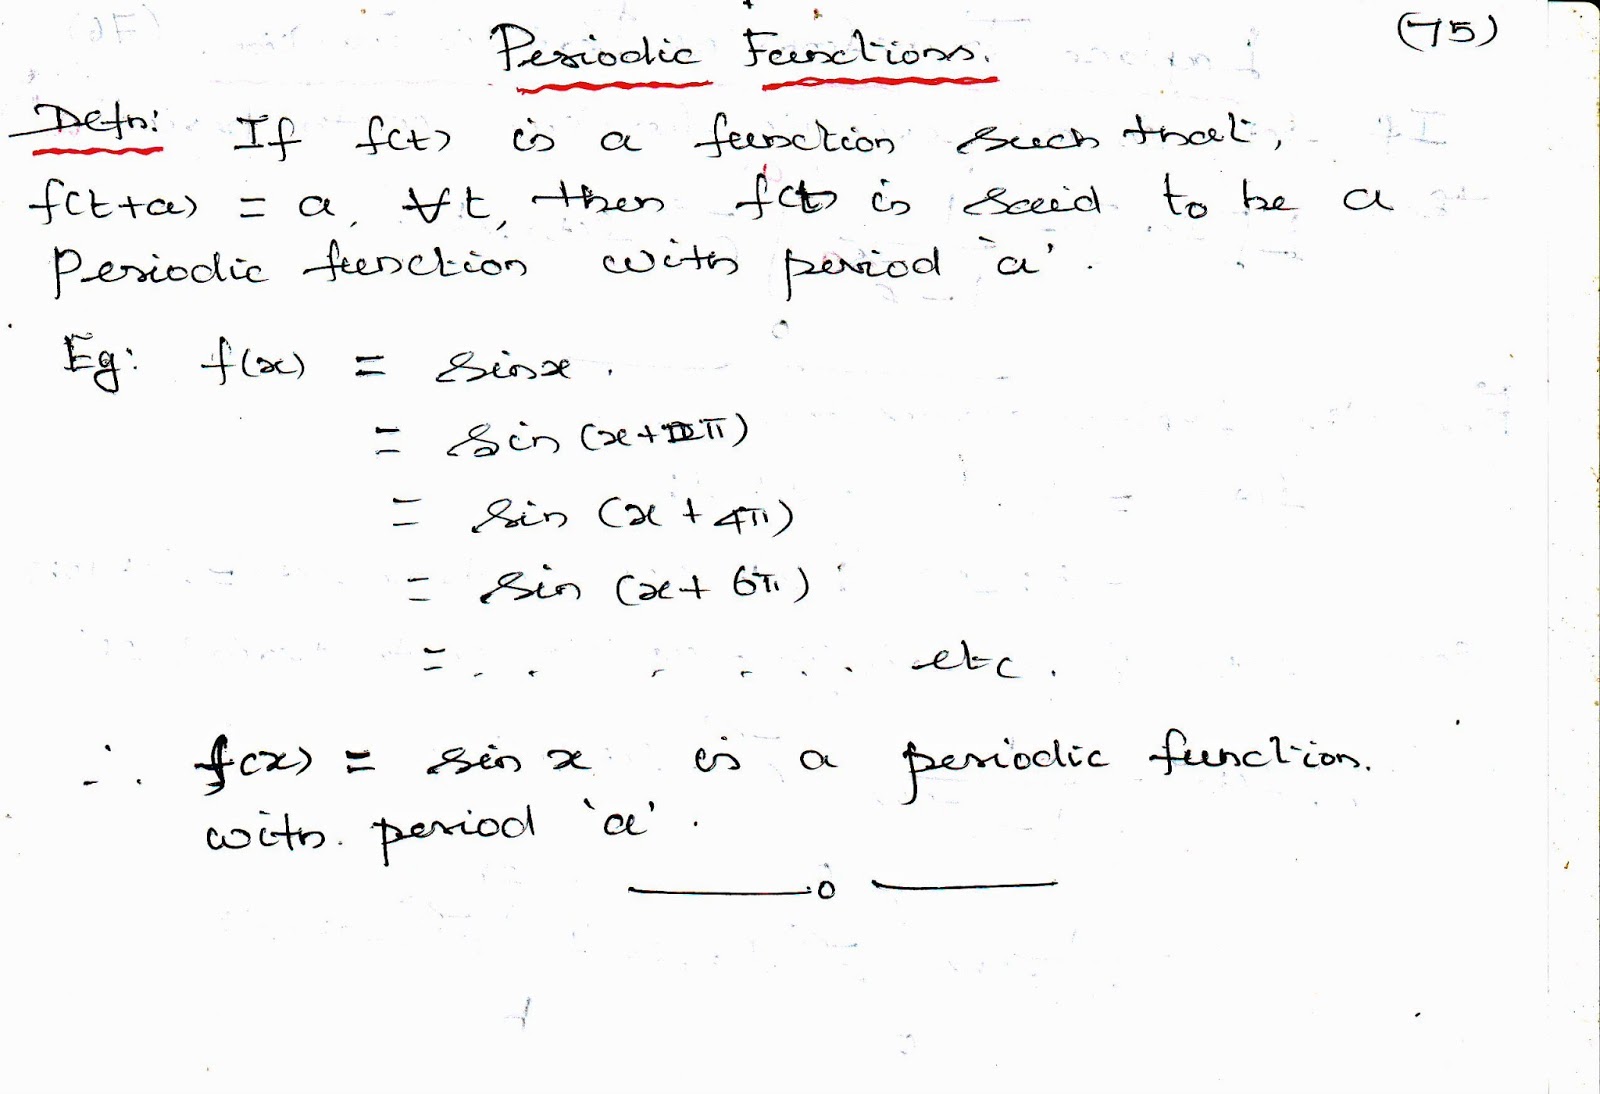 (75)
Periodic Functions.
Defn: If f(t) is a function such that,
f(t+a) = a, ∀t, then f(t) is said to be a
Periodic function with period `a'.
Eg: f(x) = sinx.
= sin (x+2π)
= sin (x + 4π)
= sin (x + 6π)
= . . . . . . etc.
∴ f(x) = sin x is a periodic function.
with. period `a'.